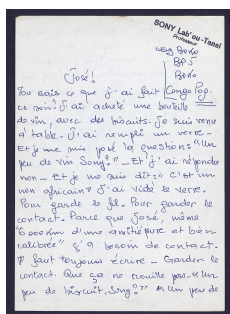 SONY Lab'ou-Tansi
Professeur
CEG Boko
BP 5
Boko
Congo Pop.
José!
Tu sais ce que j'ai fait
ce soir? J'ai acheté une bouteille
de vin, avec des biscuits. Je suis venu
à table. J'ai rempli un verre –
Et je me suis posé la question: "Un
peu de vin Sony?" – Et j'ai répondu
non – Et je me suis dit: "C'est un
non africain" J'ai vidé le verre.
Pour garde le fil. Pour garder le
contact. Parce que José, même
"6000 km d'une amitié pure et bien
calibrée" ç'a besoin de contact.
Il faut toujours écrire – Garder le
contact. Que ça ne rouille pas – "Un
peu de biscuit, Sony?" "Un peu de